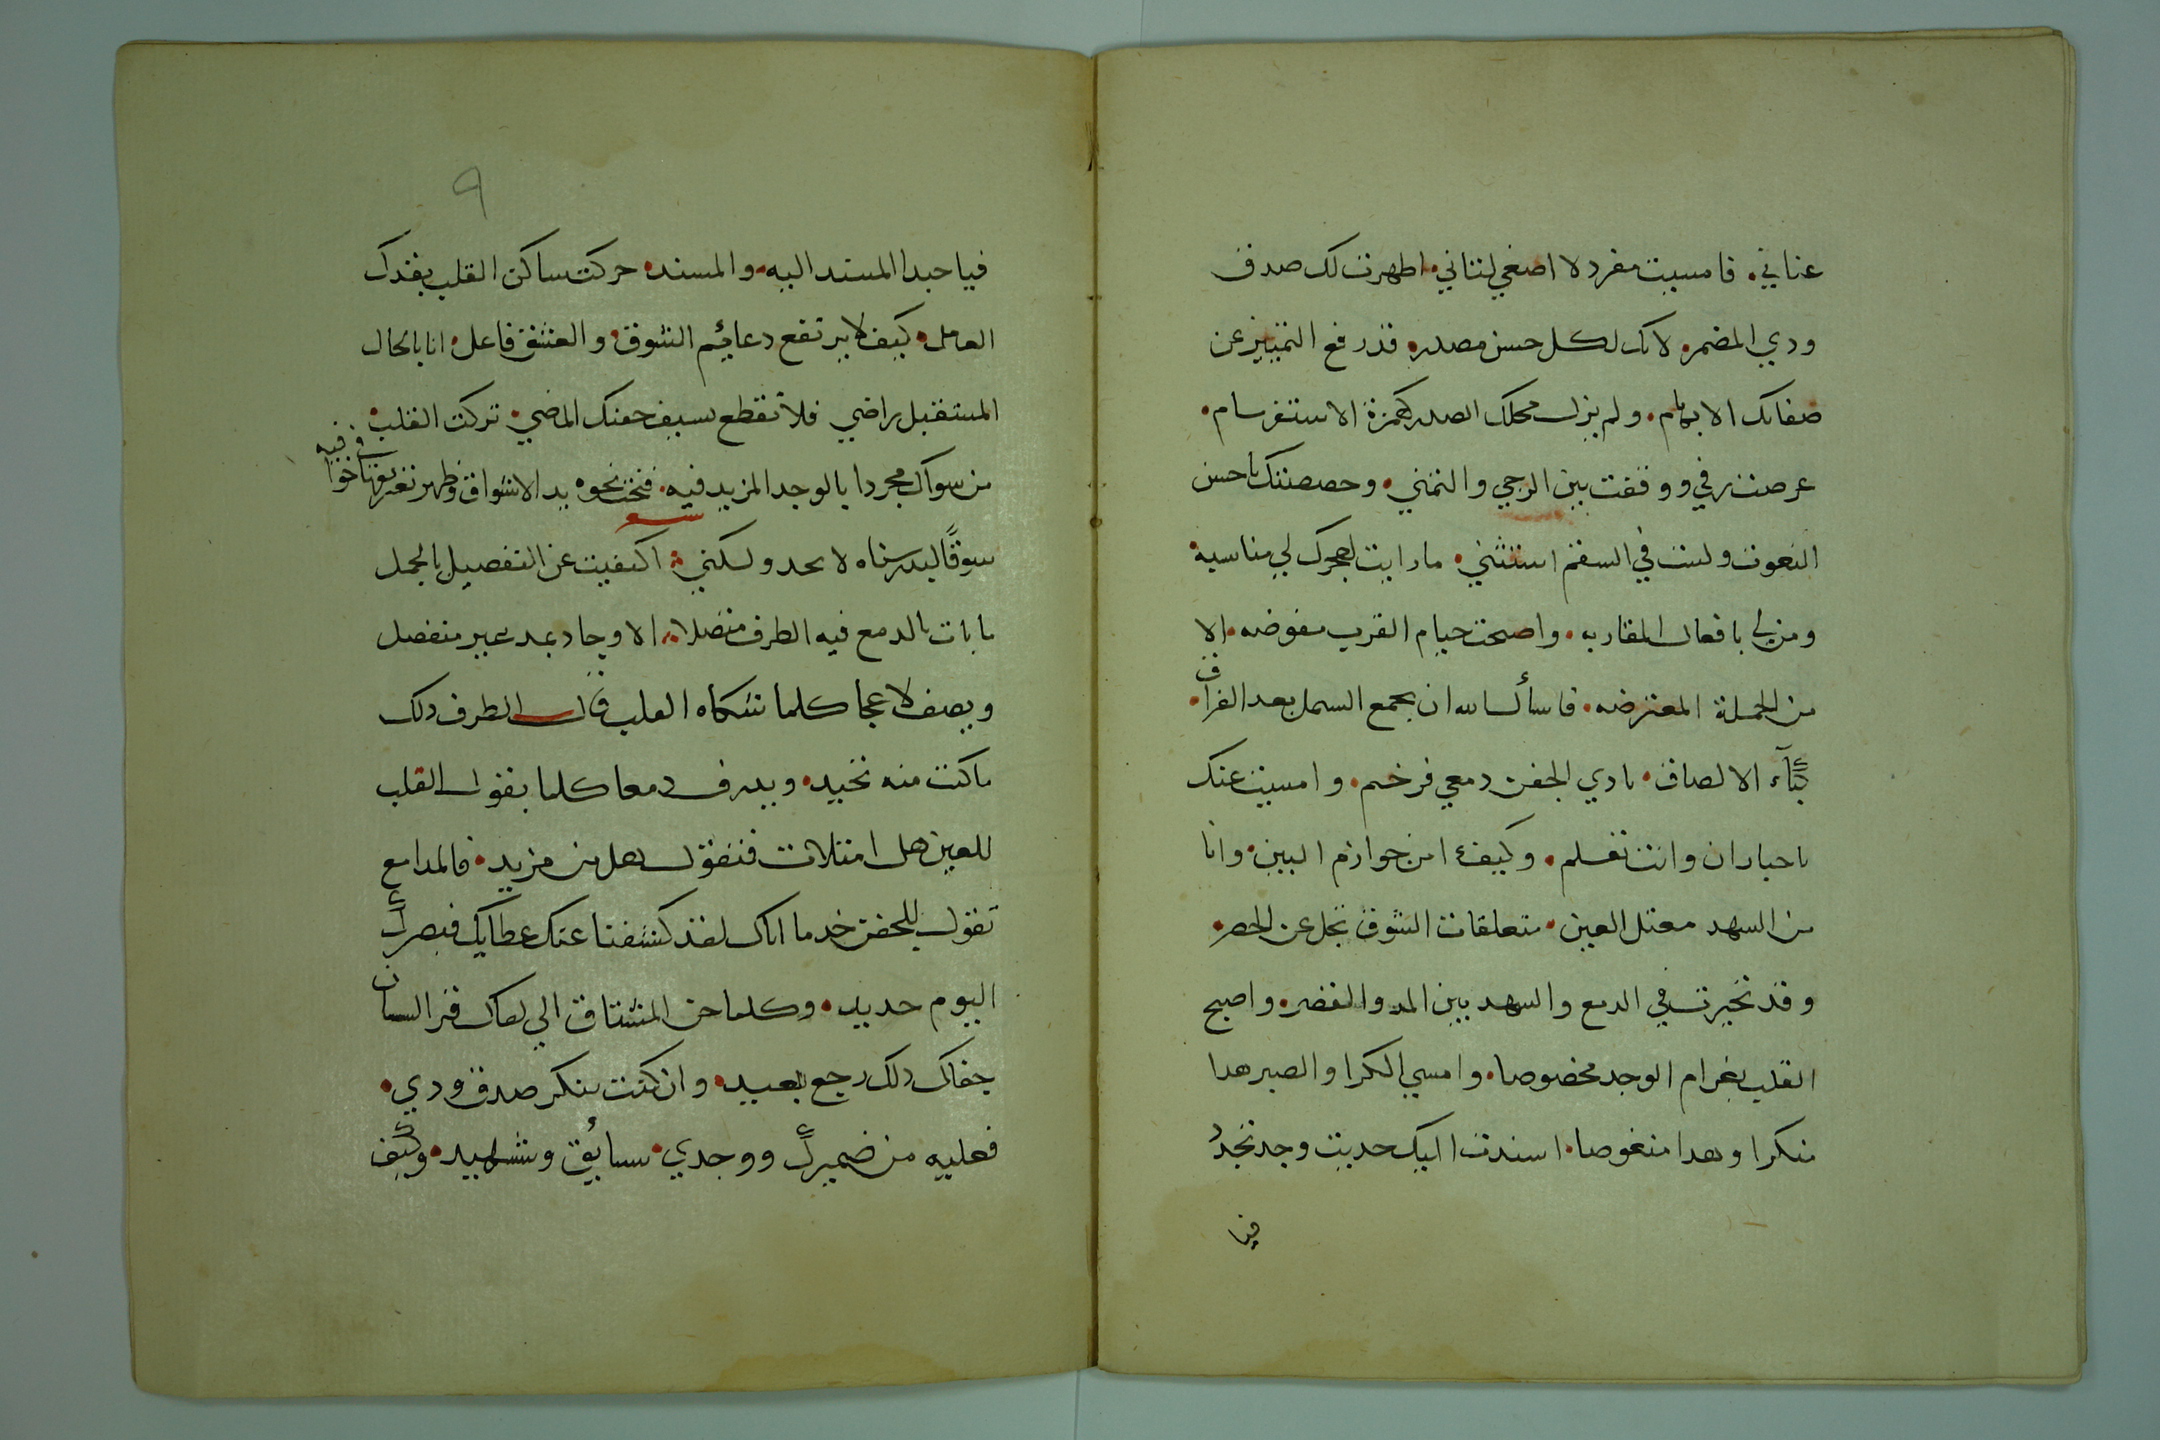 عناني. فامسيت مفرد لا اصغي لثاني. اظهرت لك صدق
ودي المضمر. لانك لكل حسن مصدر. قد رفع التمييز عن
صفاتك الابهام. ولم يزل محلك الصدر كهمزة الاستفهام.
عرصت في ووقفت بين الرجي والتمني. وخصصتك باحسن
النعوت ولست في السقم استثني. ما رايت لهجرك لي مناسبة
ومن لي بافعال المقاربه. واصحت خيام القرب مفوضه. الا
من الجملة المعترضه. فاسأل الله ان يجمع الشمل بعد الفراق.
بباء الالصاق. نادي الجفن دمعي فرخم. وامسيت عنك
باخبار ان وانت تعلم. وكيف امن جوازم البين. وانا
من السهد معتل العين. متعلقات الشوق تجل عن الحصر.
وقد تحيرت في الدمع والسهد بين المد والقصر. واصبح
القلب بغرام الوجد مخصوصا. وامسي الكرا والصبر هدا
منكرا وهدا منغوصا. اسندت اليك حديث وجد تجدد
فيا
٩
فيا حبدا المسند اليه. والمسند. حركت ساكن القلب بقدك
العامل. كيف لا يرتفع دعايم الشوق. والعشق فاعل. انا بالحال
المستقبل راضي فلا تقطع بسيف جفنك الماضي. تركت القلب.
من سواك مجردا بالوجد المزيد فيه. فنحت نحوه يد الاشواق وظهر
شوقا ليدر سناه لا يحد ولكني. اكتفيت عن التفصيل بالجمل
ما بات بالدمع فيه الطرف متصلا. الا وجاد بمد غير منفصل
ويصف لاعجا كلما شكاه القلب قال الطرف دلك
ما كنت منه تحيد. ويدرف دمعا كلما يقول القلب
للعين هل امتلات فتقول هل من مزيد. فالمدامع
تقول للجفن خد ما اتاك لقد كشفنا عنك غطايك فبصرك
اليوم حديد. وكلما حن المشتاق الي لقاك قر السان
جفاك دلك رجع بعيد. وان كنت تنكر صدق ودي.
فعليه من ضميرك ووجدي. سايق وشهيد. وكيف